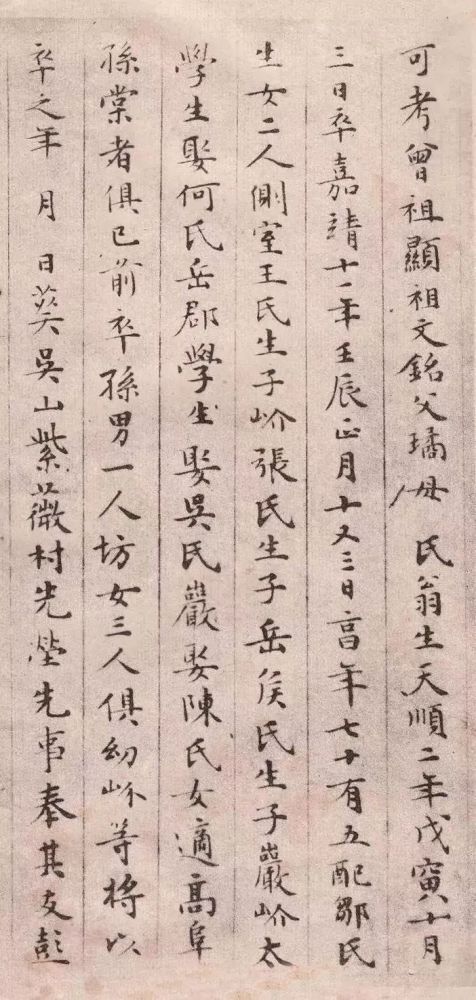 可考曾祖顯祖文銘父璚母 氏翁生天順二年戊寅十月
三日卒嘉靖十一年壬辰正月十又三日享年七十有五配鄒氏
生女二人側室王氏生子岕張氏生子岳侯氏生子巖岕太
學生娶何氏岳郡學生娶吳氏巖娶陳氏女適高阜
孫棠者俱已前卒孫男一人坊女三人俱幼岕等將以
卒之年 月 日葬吳山紫薇村先塋先事奉其友彭